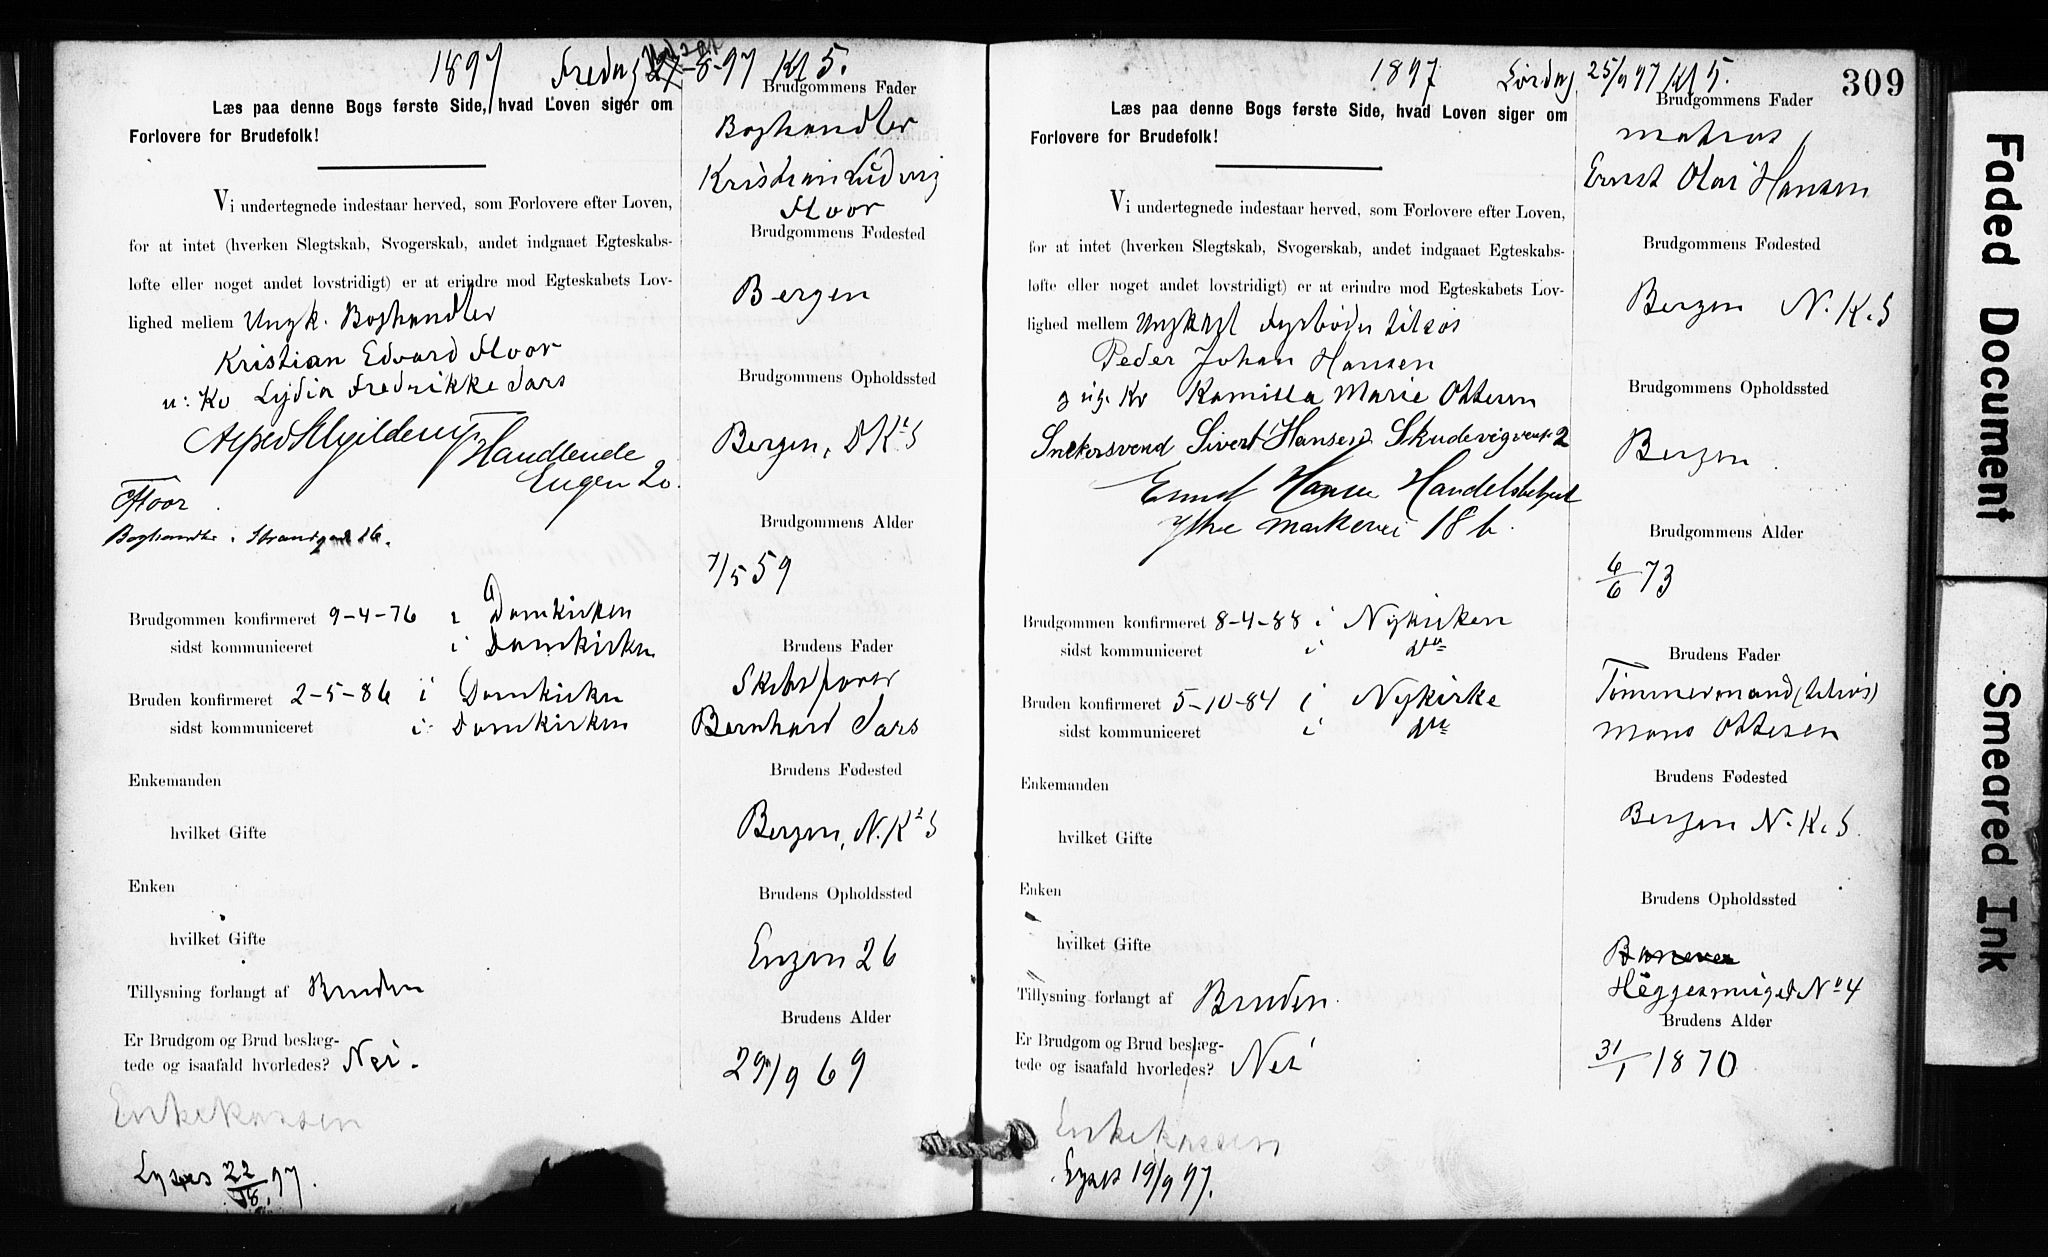 1897 Fredag 27-8-97 Kl 5.
Læs paa denne Bogs første Side, hvad Loven siger om
Forlovere for Brudefolk!
Vi undertegnede indestaar herved, som Forlovere efter Loven,
for at intet (hverken Slegtskab, Svogerskab, andet indgaaet Egteskabs-
løfte eller noget andet lovstridigt) er at erindre mod Egteskabets Lov-
lighed mellem Ungk. Boghandler
Kristian Edvard Floor
u: Kv Lydia Fredrikke Sars
Handlende
Engen 20.
Floor
Boghandler. Strandgad 16.
Brudgommen konfirmeret 9-4-76 i Domkirken
sidst kommuniceret i Domkirken
Bruden konfirmeret 2-5-86 i Domkirken
sidst kommuniceret i Domkirken
Enkemanden
hvilket Gifte
Enken
hvilket Gifte
Tillysning forlangt af Bruden
Er Brudgom og Brud beslæg-
tede og isaafald hvorledes? Nei.
Enkekassen
Lyses 22/8 97.
Brudgommens Fader
Boghandler
Kristian Ludvig
Floor
Brudgommens Fødested
Bergen
Brudgommens Opholdssted
Bergen, D Ks S
Brudgommens Alder
7/5 59
Brudens Fader
Skibsfører
Bernhard Sars
Brudens Fødested
Bergen, N. Ks S
Brudens Opholdssted
Engen 26
Brudens Alder
29/9 69
1897 Lørdag 25/9 97 Kl 5.
309
Læs paa denne Bogs første Side, hvad Loven siger om
Forlovere for Brudefolk!
Vi undertegnede indestaar herved, som Forlovere efter Loven,
for at intet (hverken Slegtskab, Svogerskab, andet indgaaet Egteskabs-
løfte eller noget andet lovstridigt) er at erindre mod Egteskabets Lov-
lighed mellem Ungkarl Fyrbøder tilsøs
Peder Johan Hansen
og ug. Kv Kamilla Marie Ottesen
Snekersvend Sivert Hansen Skudevigveien 2
Ernst Hansen Handelsbetjent
Ytre Markevei 18 b.
Brudgommen konfirmeret 8-4-88 i Nykirken
sidst kommuniceret i do
Bruden konfirmeret 5-10-84 i Nykirke
sidst kommuniceret i do
Enkemanden
hvilket Gifte
Enken
hvilket Gifte
Tillysning forlangt af Bruden.
Er Brudgom og Brud beslæg-
tede og isaafald hvorledes? Nei
Enkekassen
Lyses 19/9 97.
Brudgommens Fader
Matros
Ernst Olai Hansen
Brudgommens Fødested
Bergen N. K. S
Brudgommens Opholdssted
Bergen
Brudgommens Alder
6/6 73
Brudens Fader
Tømmermand (tilsøs)
Mons Ottesen
Brudens Fødested
Bergen N. K. S.
Brudens Opholdssted
No 4
Brudens Alder
31/1 1870
Faded Document
Smeared Ink